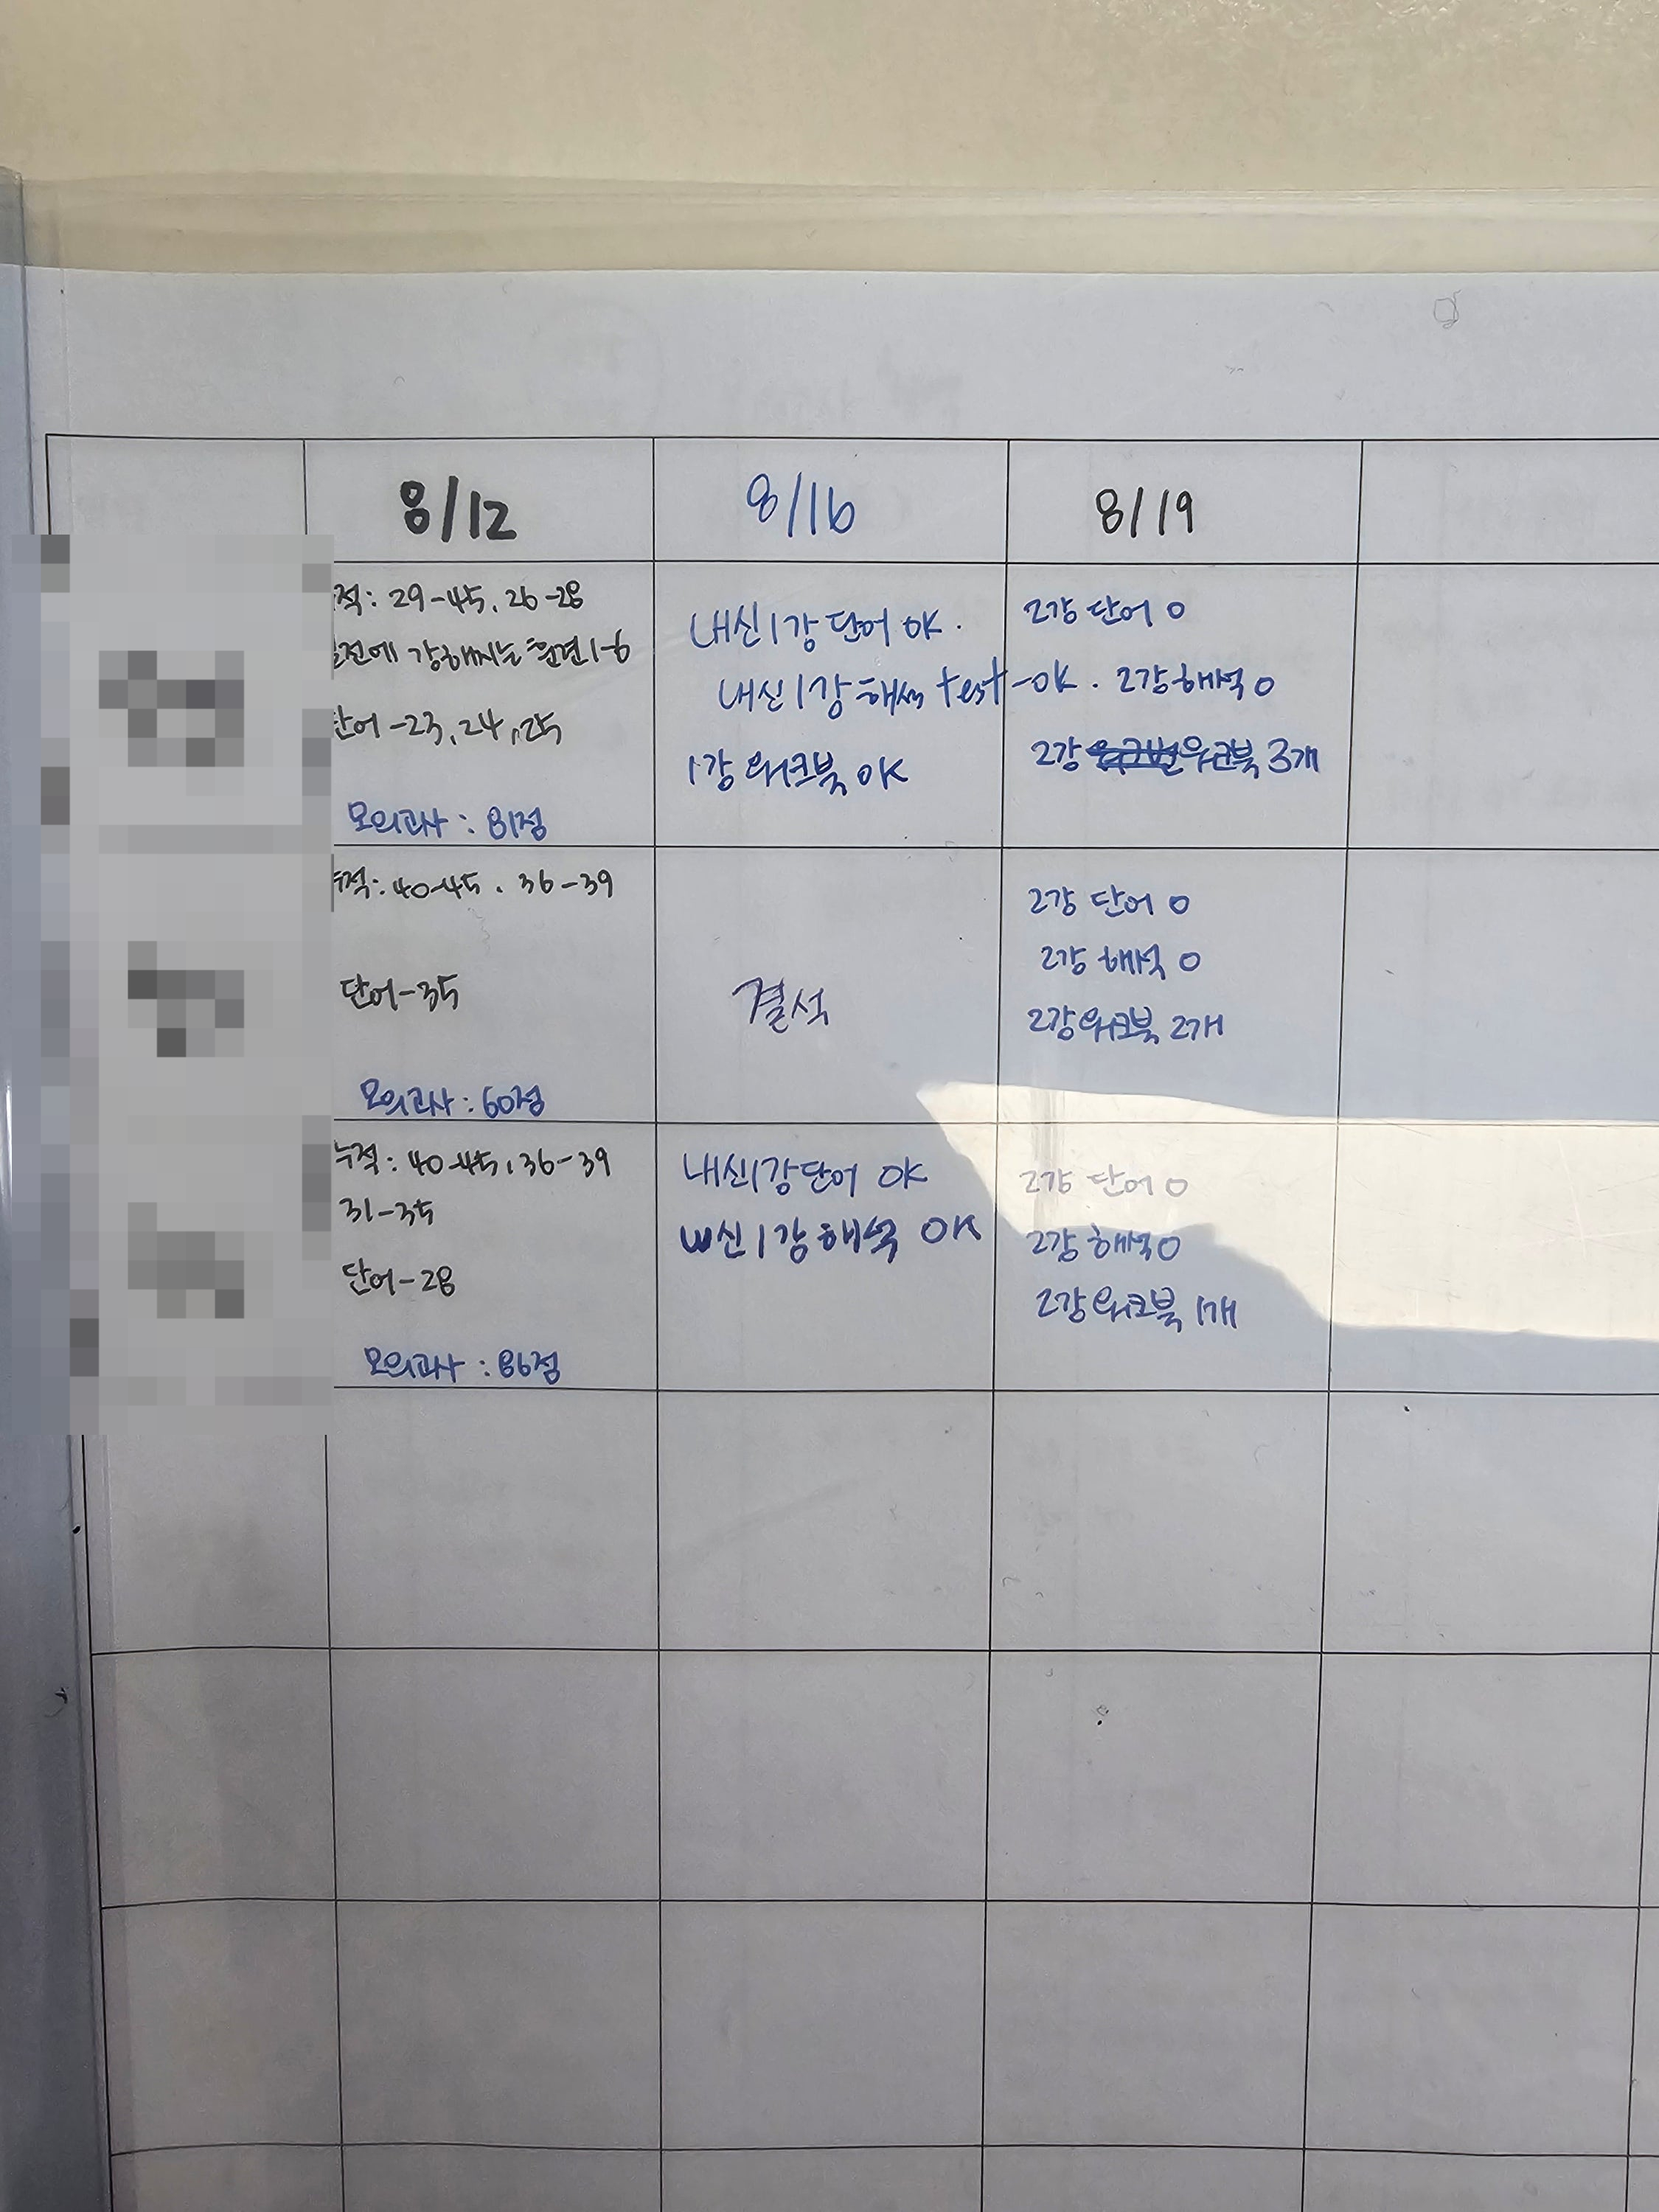 8/12 8/16 8/19
적: 29-45, 26-28
전에 강해지는 훈련 1-6
단어 -23, 24, 25
모의고사 : 81점
내신 1강 단어 OK.
내신 1강 해석 test-OK.
1강 워크북 OK
2강 단어 O
2강 해석 O
2강 워크북 3개
적: 40-45. 36-39
단어-35
모의고사 : 60점
결석
2강 단어 O
2강 해석 O
2강 워크북 2개
누적: 40-45, 36-39
31-35
단어-28
모의고사 : 86점
내신 1강 단어 OK
내신 1강 해석 OK
2강 단어 O
2강 해석 O
2강 워크북 1개